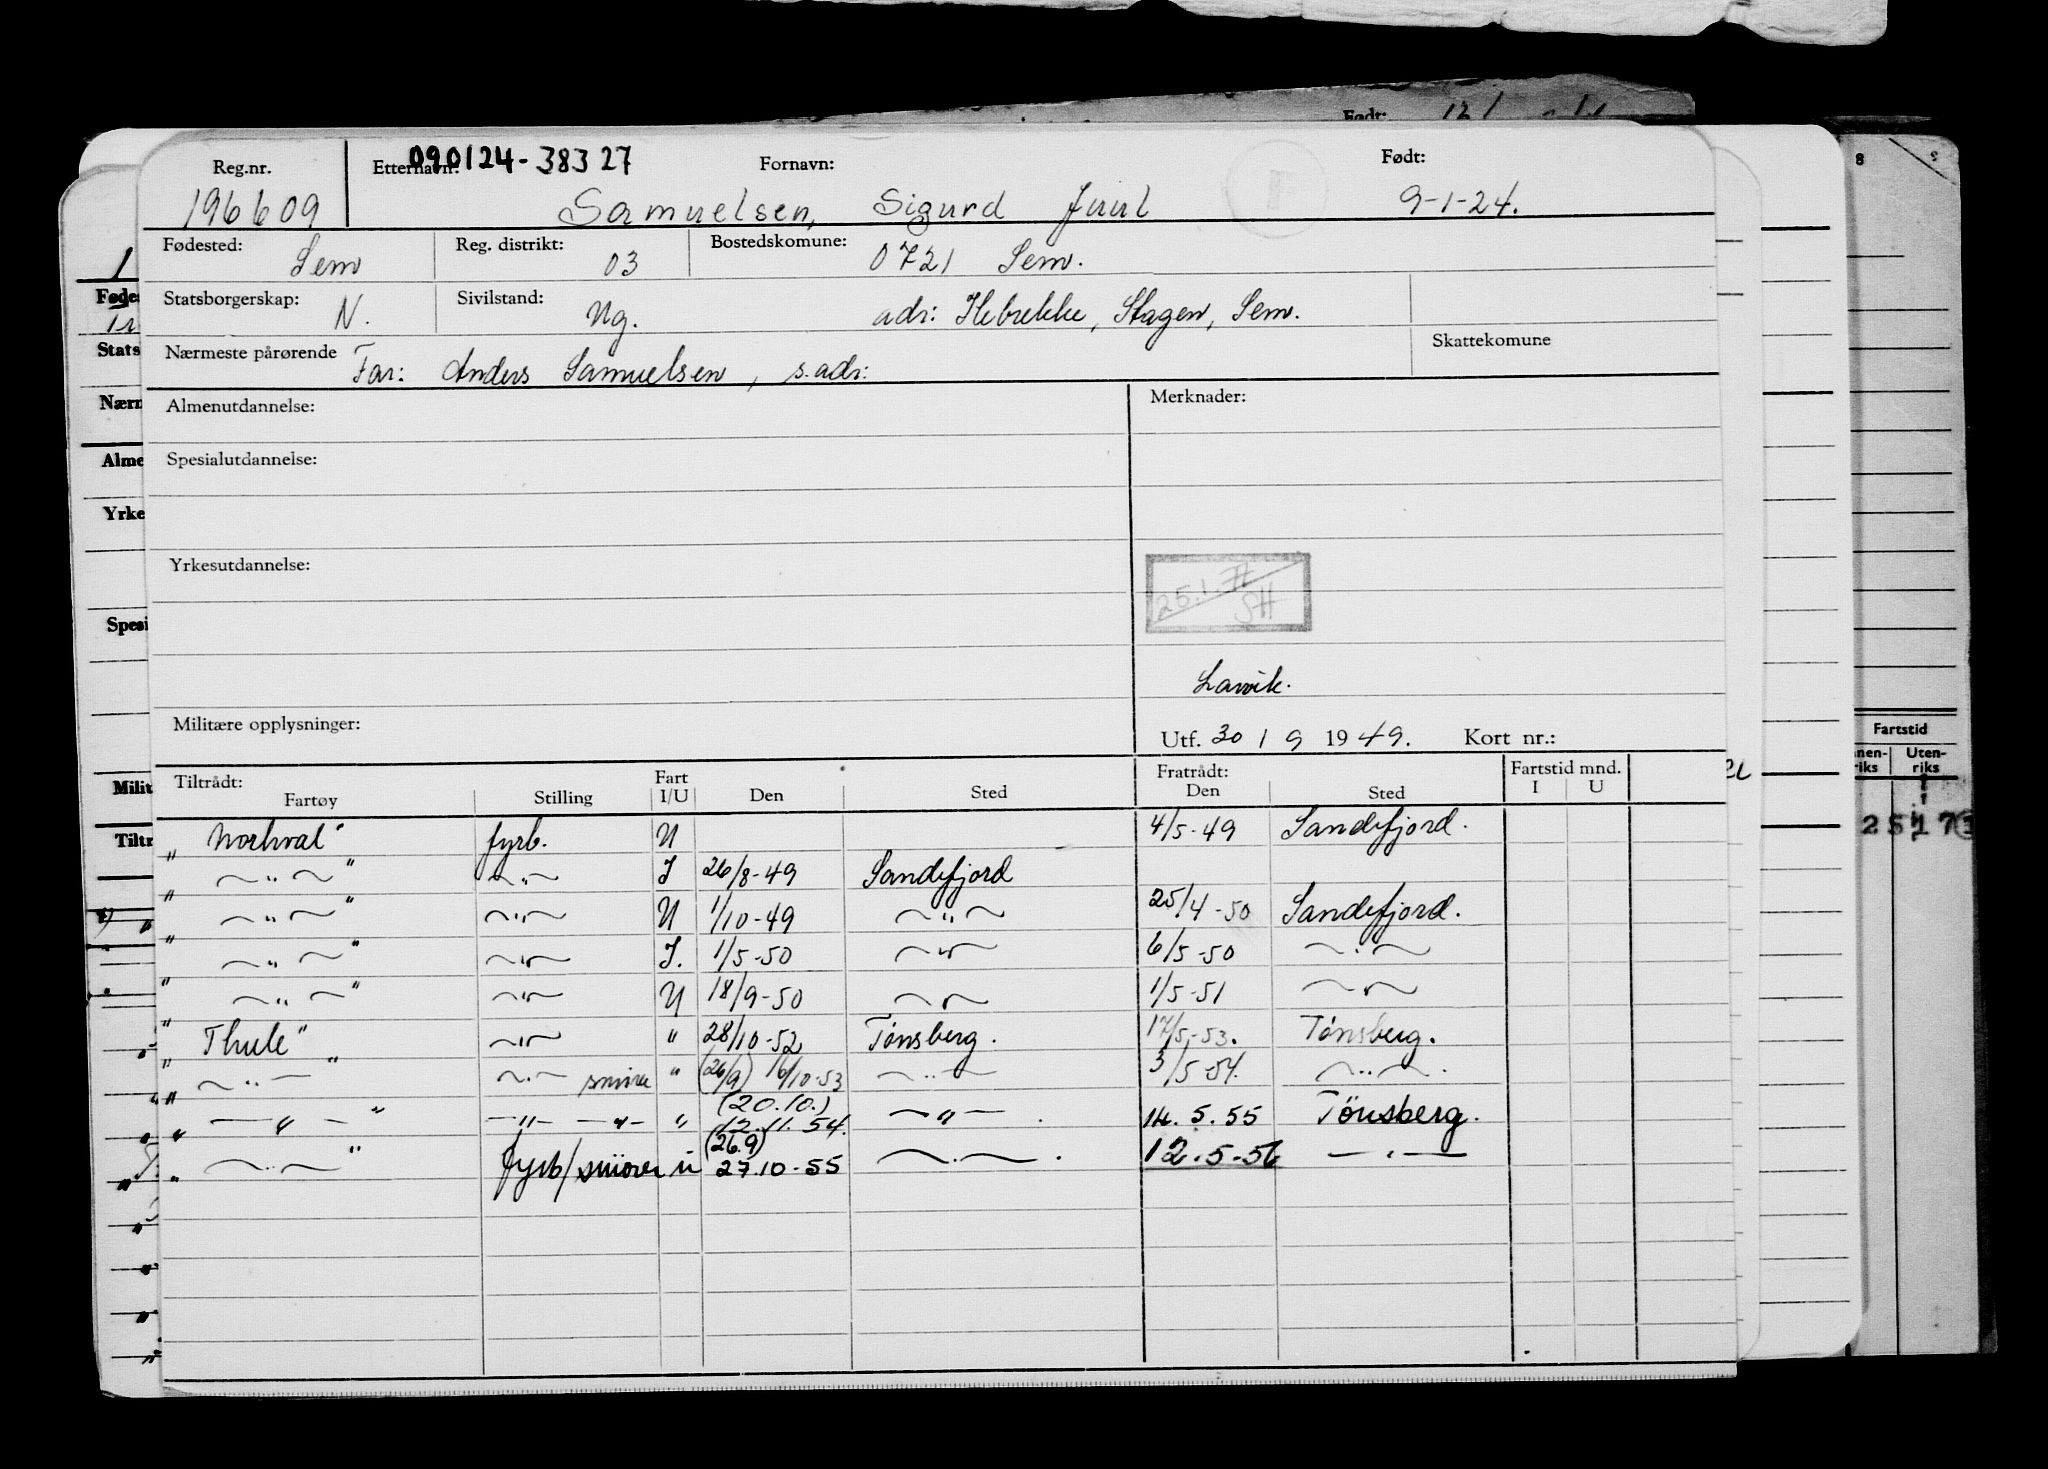 Reg.nr. Etternavn: 090124-38327 Fornavn: Født:
196609 Samuelsen, Sigurd Juul 9-1-24.
Fødested: Sem Reg. distrikt: 03 Bostedskomune: 0721 Sem.
Statsborgerskap: N. Sivilstand: Ug. adr: Ilebrekke, Slagen, Sem.
Nærmeste pårørende Far: Anders Samuelsen, s. adr: Skattekomune
Almenutdannelse: Merknader:
Spesialutdannelse:
Yrkesutdannelse:
25.1.
SH
Larvik.
Militære opplysninger: Utf. 30 / 9 1949. Kort nr.:
Tiltrådt: Fart Fratrådt: Fartstid mnd.
Fartøy Stilling I/U Den Sted Den Sted I U
"Norhval" fyrb. U 4/5-49 Sandefjord.
" —"— " —"— I 26/8-49 Sandefjord
" —"— " —"— U 1/10-49 —"— 25/4-50 Sandefjord.
" —"— " —"— I. 1/5-50 —"— 6/5-50 —"—
" —"— " —"— U 18/9-50 —"— 1/5-51 —"—
"Thule" —"— " 28/10-52 Tønsberg. 17/5-53. Tønsberg.
" —"— " —"— smører " (26/9) 16/10-53 —"— 3/5-54. —"—.
(20.10.)
" —"— " —"— —"— " 12.11.54. —"—. 14.5.55 Tönsberg.
(26.9)
" —"— " fyrb/smører u 27.10-55 —"—. 12.5-56 —"—
Født:
Fødes
Stats
Nærn
Alme
Yrke
Spesi
Milit
Tiltr
8
Fartstid
Uten-
riks riks